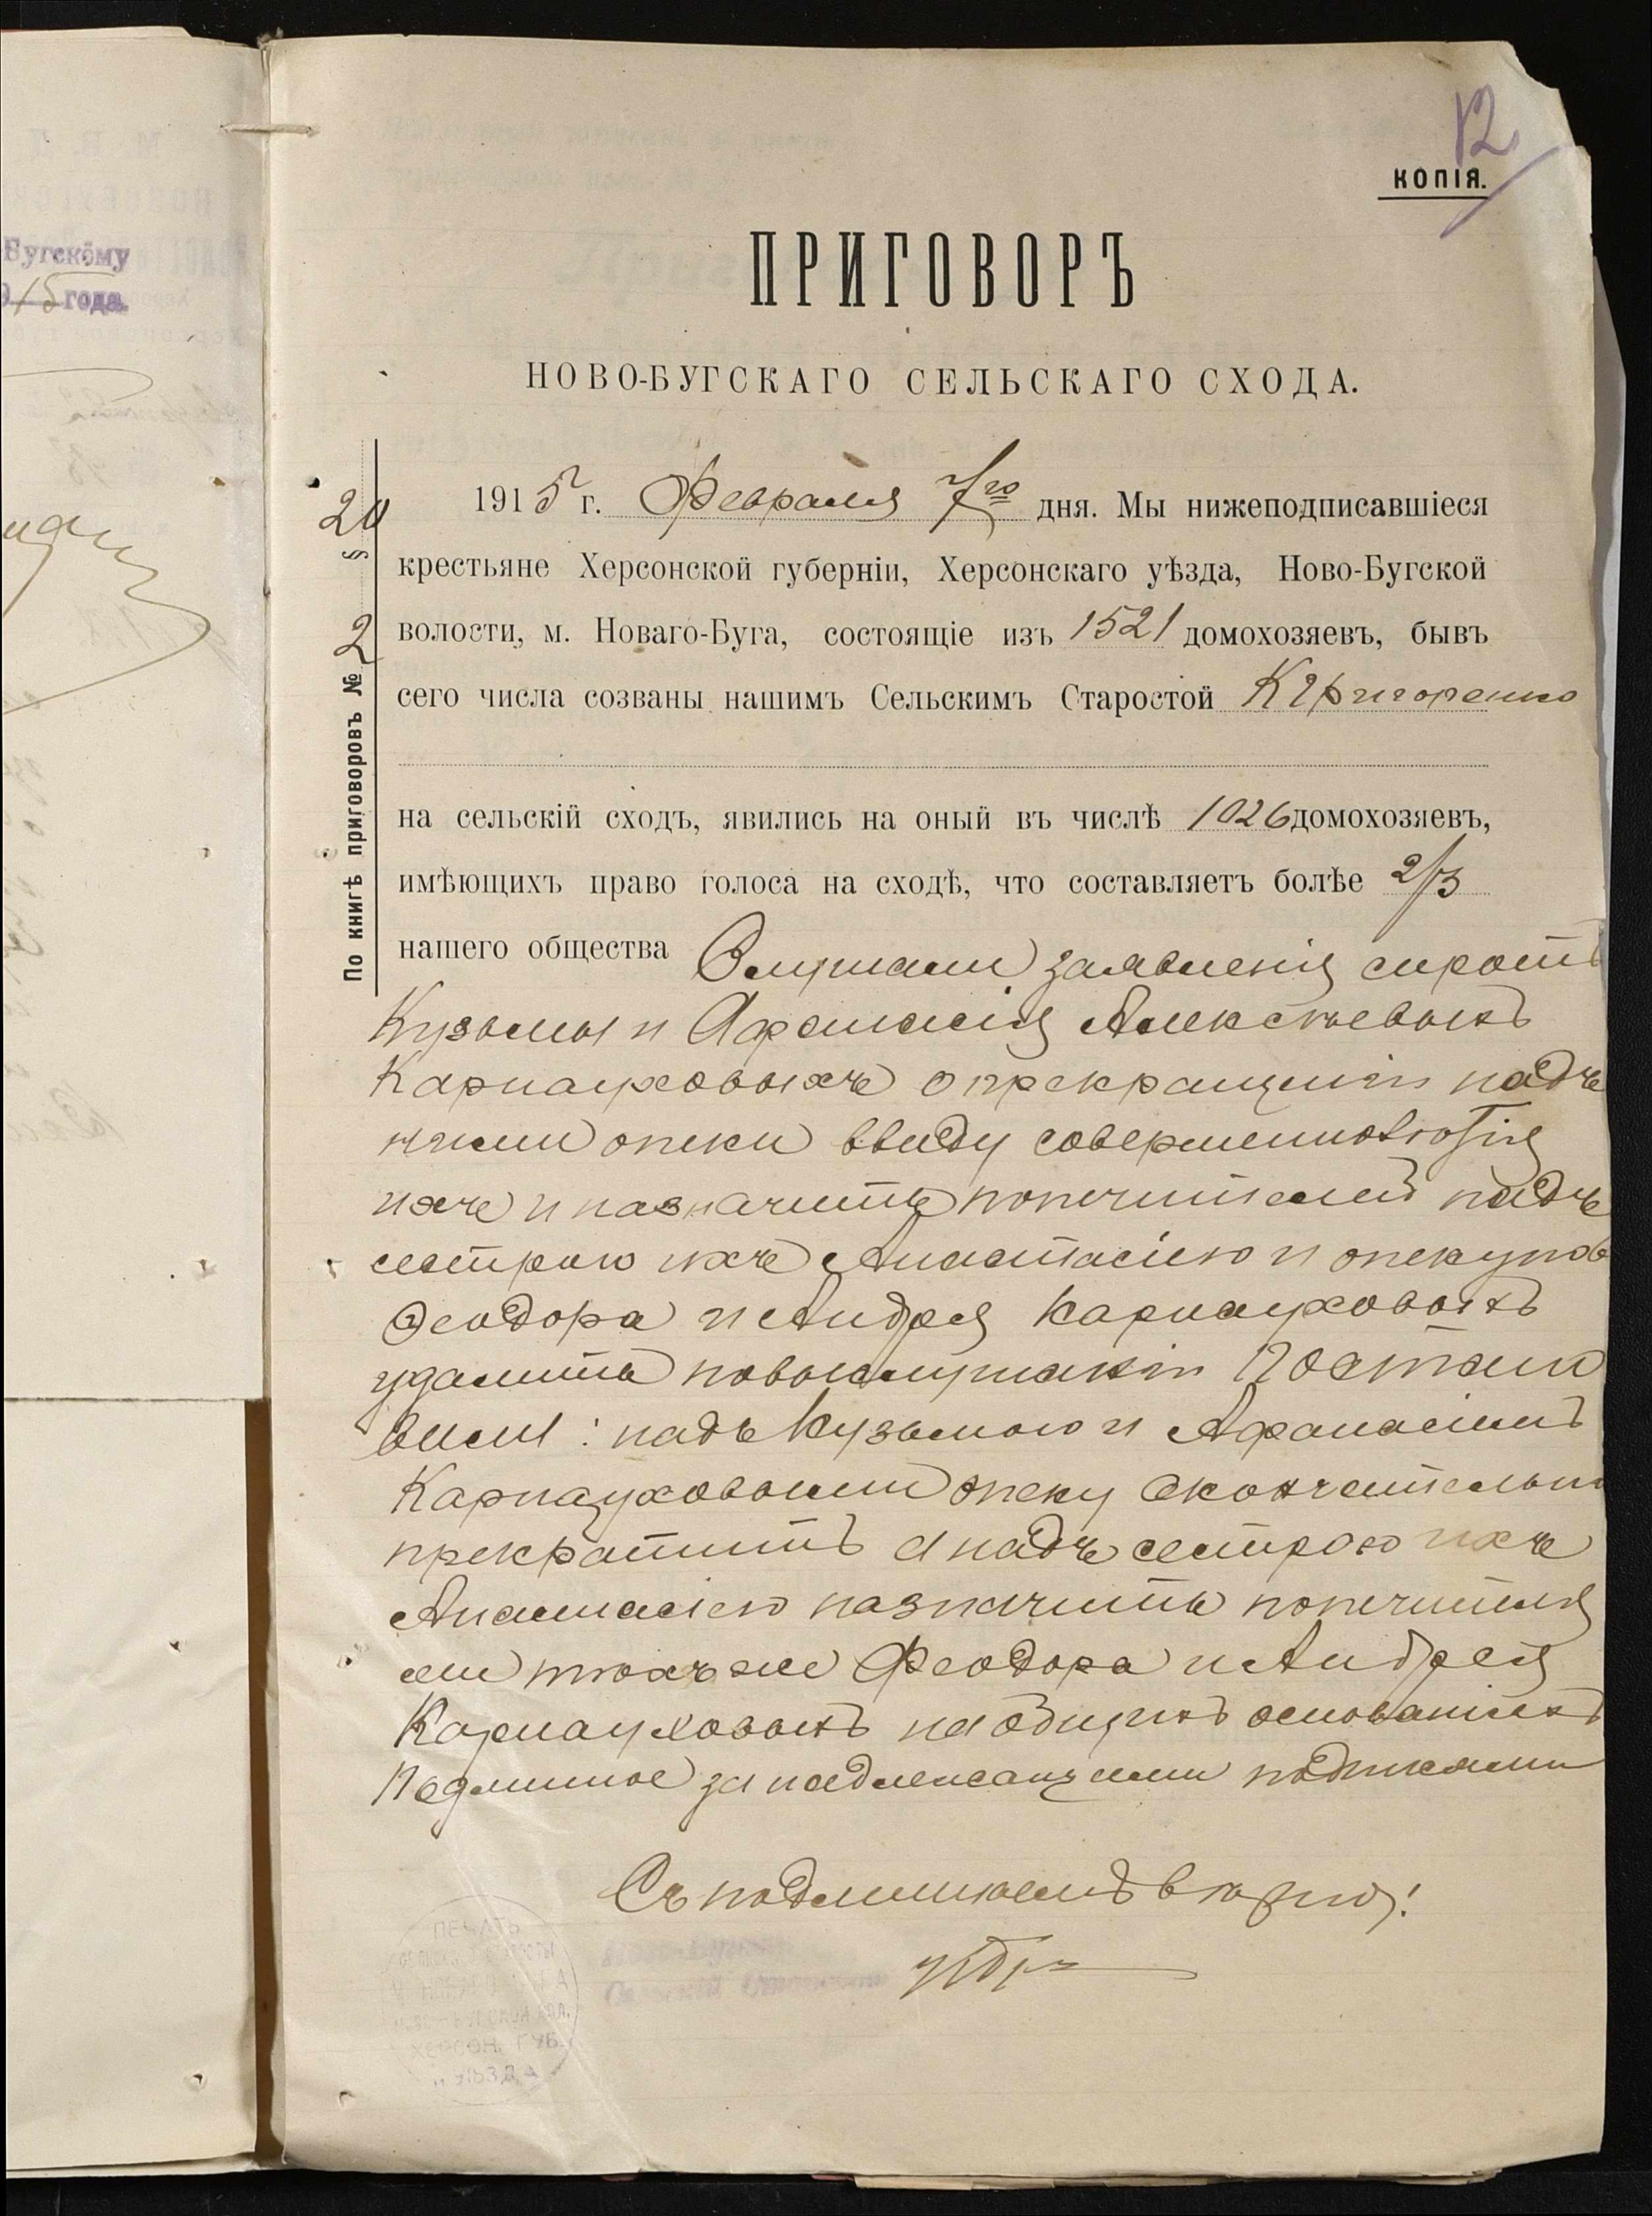 12
КОПІЯ.
ПРИГОВОРЪ
НОВО-БУГСКАГО СЕЛЬСКАГО СХОДА.
Бугскому
15 года.
По книгѣ приговоровъ № 2 § 20
1915 г. Февраля 7го дня. Мы нижеподписавшіеся
крестьяне Херсонской губерніи, Херсонскаго уѣзда, Ново-Бугской
волости, м. Новаго-Буга, состоящіе изъ 1521 домохозяевъ, бывъ
сего числа созваны нашимъ Сельскимъ Старостой К Григоренко
на сельскій сходъ, явились на оный въ числѣ 1026 домохозяевъ,
имѣющихъ право голоса на сходѣ, что составляетъ болѣе 2/3
нашего общества Слушали заявленія сиротъ
Кузьмы и Афанасія Алексѣевыхъ
Карнауховыхъ о прекращеніи надъ
ними опеки ввиду совершеннолѣтія
ихъ и назначить попечителей надъ
сестрою ихъ Анастасіею и опекунов
Феодора и Андрея Карнауховыхъ
удалить по выслушаніи Постано
вили: надъ Кузьмою и Афанасіемъ
Карнауховыми опеку окончательно
прекратить а надъ сестрою ихъ
Анастасіею назначить попечителя
ми тѣхъ же Феодора и Андрея
Карнауховыхъ на общихъ основаніяхъ
Подлинное за надлежащими подписями
Съ подлиннымъ вѣрно!
ПЕЧАТЬ